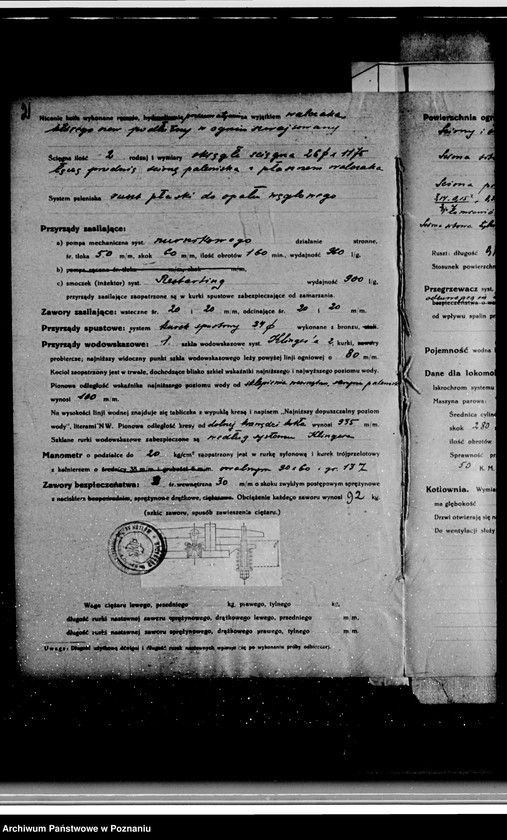 Nicenie kotła wykonane ręcznie, hydraulicznie, pneumatycznie z wyjątkiem walczaka
Ścięgna ilość 2 rodzaj i wymiary okrągłe ścięgna 26 ø i 11/5
łączą przednią ścianę paleniska z płaszczem walczaka
System paleniska ruszt płaski do opału węglowego
Przyrządy zasilające:
a) pompa mechaniczna syst. nurnikowego działanie stronne,
śr. tłoka 50 m/m, skok 60 m/m, ilość obrotów 160 min., wydajność 960 l/g,
b) pompa ręczna śr. tłoka m/m, skok m/m.
c) smoczek (inżektor) syst. Restarting wydajność 900 l/g,
przyrządy zasilające zaopatrzone są w kurki spustowe zabezpieczające od zamarzania.
Zawory zasilające: wsteczne śr. 20 i 20 m/m, odcinające śr. 20 i 20 m/m.
Przyrządy spustowe: system kurek spustowy 24 ø wykonane z bronzu, stali.
Przyrządy wodowskazowe: 1. szkła wodowskazowe syst. Klinger'a 2. kurki, zawory
probiercze; najniższy widoczny punkt szkła wodowskazowego leży powyżej linji ogniowej o 80 m/m.
Kocioł zaopatrzony jest w trwałe, dochodzące blisko szkieł wskaźniki najniższego i najwyższego poziomu wody.
Pionowa odległość wskaźnika najniższego poziomu wody od sklepienia zewnętrzn. skrzyni paleniska
wynosi 180 m/m.
Na wysokości linji wodnej znajduje się tabliczka z wypukłą kresą i napisem „Najniższy dopuszczalny poziom
wody", literami "NW. Pionowa odległość kresy od dolnej krawędzi kotła wynosi 935 m/m.
Szklane rurki wodowskazowe zabezpieczone są według systemu Klingera
Manometr o podziałce do 20 kg/cm² zaopatrzony jest w rurkę syfonową i kurek trójprzelotowy
z kołnierzem o średnicy 38 m/m i grubości 6 m/m. owalnym 90x60 i gr. 13
Zawory bezpieczeństwa: 2 śr. wewnętrzna 30 m/m o skoku zwykłym postępowym sprężynowe
z naciskiem bezpośrednim, sprężynowe drążkowe, ciężarowe. Obciążenie każdego zaworu wynosi 92 kg.
(szkic zaworu, sposób zawieszenia ciężaru.)
Waga ciężaru lewego, przedniego kg, prawego, tylnego kg.
długość rurki nastawnej zaworu sprężynowego, drążkowego lewego, przedniego m/m.
długość rurki nastawnej zaworu sprężynowego, drążkowego prawego, tylnego m/m.
Uwaga: Długość użytkową dźwigni i długość rurek nastawnych wpisuje się po wykonaniu próby odbiorczej.
Powierzchnia ogn
Ściany
Ściana
Ruszt: długość
Stosunek powierzchni
Przegrzewacz syst.
bezpieczeństwa o
od wpływu spalin pr
Pojemność wodna
Dane dla lokomo
Iskrochron systemu
Maszyna parowa:
Średnica cylin
skok 280
ilość obrotów
Sprawność pr
50 K. M.
Kotłownia. Wymia
ma głębokość
Drzwi otwierają się n
Do wentylacji służy
Archiwum Państwowe w Poznaniu